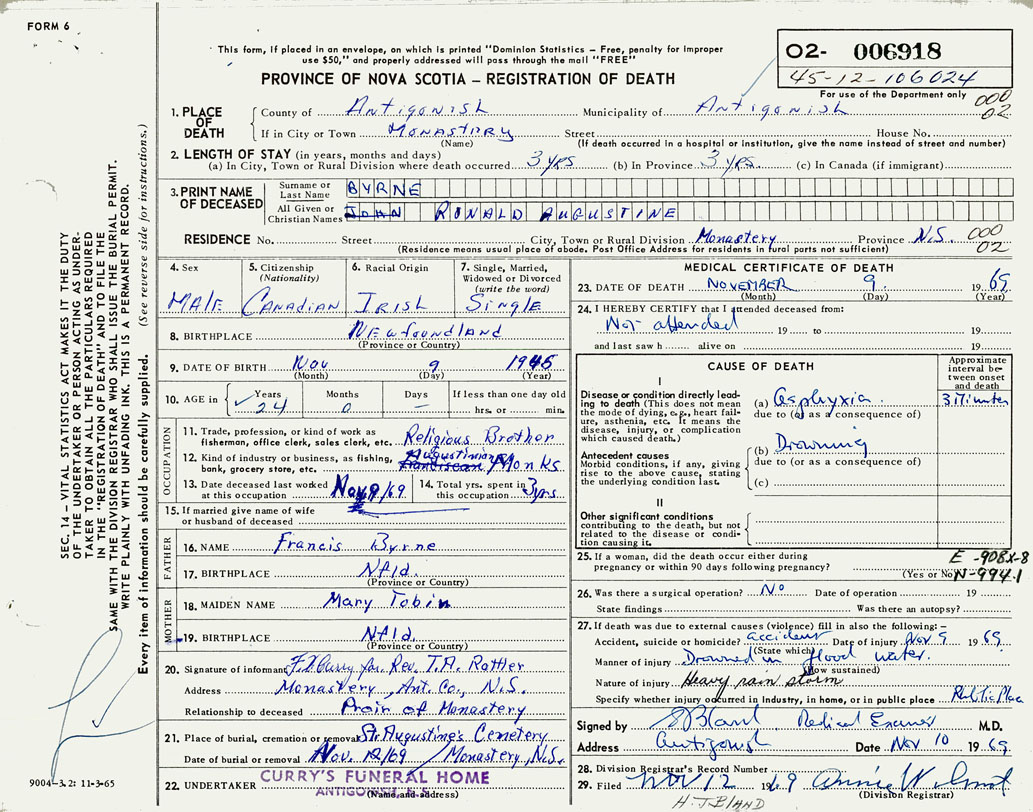 FORM 6
This form, if placed in an envelope, on which is printed "Dominion Statistics – Free, penalty for improper
use $50," and properly addressed will pass through the mail "FREE"
PROVINCE OF NOVA SCOTIA – REGISTRATION OF DEATH
02- 006918
45-12-106024
For use of the Department only
000
02
1. PLACE OF DEATH
County of Antigonish Municipality of Antigonish
If in City or Town Monastary Street House No.
(Name) (If death occurred in a hospital or institution, give the name instead of street and number)
2. LENGTH OF STAY (in years, months and days)
(a) In City, Town or Rural Division where death occurred 3 yrs (b) In Province 3 yrs. (c) In Canada (if immigrant)
3. PRINT NAME OF DECEASED
Surname or Last Name BYRNE
All Given or Christian Names JOHN RONALD AUGUSTINE
RESIDENCE No. Street City, Town or Rural Division Monastery Province N.S. 000
02
(Residence means usual place of abode. Post Office Address for residents in rural parts not sufficient)
4. Sex 5. Citizenship (Nationality) 6. Racial Origin 7. Single, Married, Widowed or Divorced (write the word)
Male Canadian Irish Single
8. BIRTHPLACE Newfoundland
(Province or Country)
9. DATE OF BIRTH Nov 9 1945
(Month) (Day) (Year)
10. AGE in Years Months Days If less than one day old
24 0 — hrs. or min.
OCCUPATION
11. Trade, profession, or kind of work as fisherman, office clerk, sales clerk, etc. Religious Brother
12. Kind of industry or business, as fishing, bank, grocery store, etc. Augustinian Franciscan Monks
13. Date deceased last worked at this occupation Nov 9/69 14. Total yrs. spent in this occupation 3 yrs
15. If married give name of wife or husband of deceased
FATHER
16. NAME Francis Byrne
17. BIRTHPLACE Nfld.
(Province or Country)
MOTHER
18. MAIDEN NAME Mary Tobin
19. BIRTHPLACE Nfld.
(Province or Country)
20. Signature of informant for Rev. T.A. Rattler
Address Monastery, Ant. Co., N.S.
Relationship to deceased Prior of Monastery
21. Place of burial, cremation or removal St. Augustine's Cemetery
Date of burial or removal Nov. 12/69 / Monastery, N.S.
22. UNDERTAKER CURRY'S FUNERAL HOME
ANTIGONISH, N.S.
(Name and address)
MEDICAL CERTIFICATE OF DEATH
23. DATE OF DEATH NOVEMBER 9 1969
(Month) (Day) (Year)
24. I HEREBY CERTIFY that I attended deceased from:
Not attended 19 to 19
and last saw h alive on 19
CAUSE OF DEATH
Approximate interval between onset and death
I
Disease or condition directly leading to death (This does not mean the mode of dying, e.g., heart failure, asthenia, etc. It means the disease, injury, or complication which caused death.)
(a) Asphyxia 3 Minutes
due to (or as a consequence of)
Antecedent causes
Morbid conditions, if any, giving rise to the above cause, stating the underlying condition last.
(b) Drowning
due to (or as a consequence of)
(c)
II
Other significant conditions contributing to the death, but not related to the disease or condition causing it.
25. If a woman, did the death occur either during pregnancy or within 90 days following pregnancy?
(Yes or No)
E -908X-8
N-994.1
26. Was there a surgical operation? No Date of operation 19
State findings Was there an autopsy?
27. If death was due to external causes (violence) fill in also the following:–
Accident, suicide or homicide? accident Date of injury Nov 9 1969.
(State which)
Manner of injury Drowned in flood water.
(How sustained)
Nature of injury Heavy rain storm
Specify whether injury occurred in industry, in home, or in public place Public Place
Signed by Bland Medical Examiner M.D.
Address Antigonish Date Nov 10 1969.
28. Division Registrar's Record Number
29. Filed Nov 12 1969
(Division Registrar)
H.J. BLAND
SEC. 14 – VITAL STATISTICS ACT MAKES IT THE DUTY
OF THE UNDERTAKER OR PERSON ACTING AS UNDER-
TAKER TO OBTAIN ALL THE PARTICULARS REQUIRED
IN THE "REGISTRATION OF DEATH" AND TO FILE THE
SAME WITH THE DIVISION REGISTRAR WHO SHALL ISSUE THE BURIAL PERMIT.
WRITE PLAINLY WITH UNFADING INK. THIS IS A PERMANENT RECORD.
Every item of information should be carefully supplied. (See reverse side for instructions.)
9004-3.2: 11-3-65